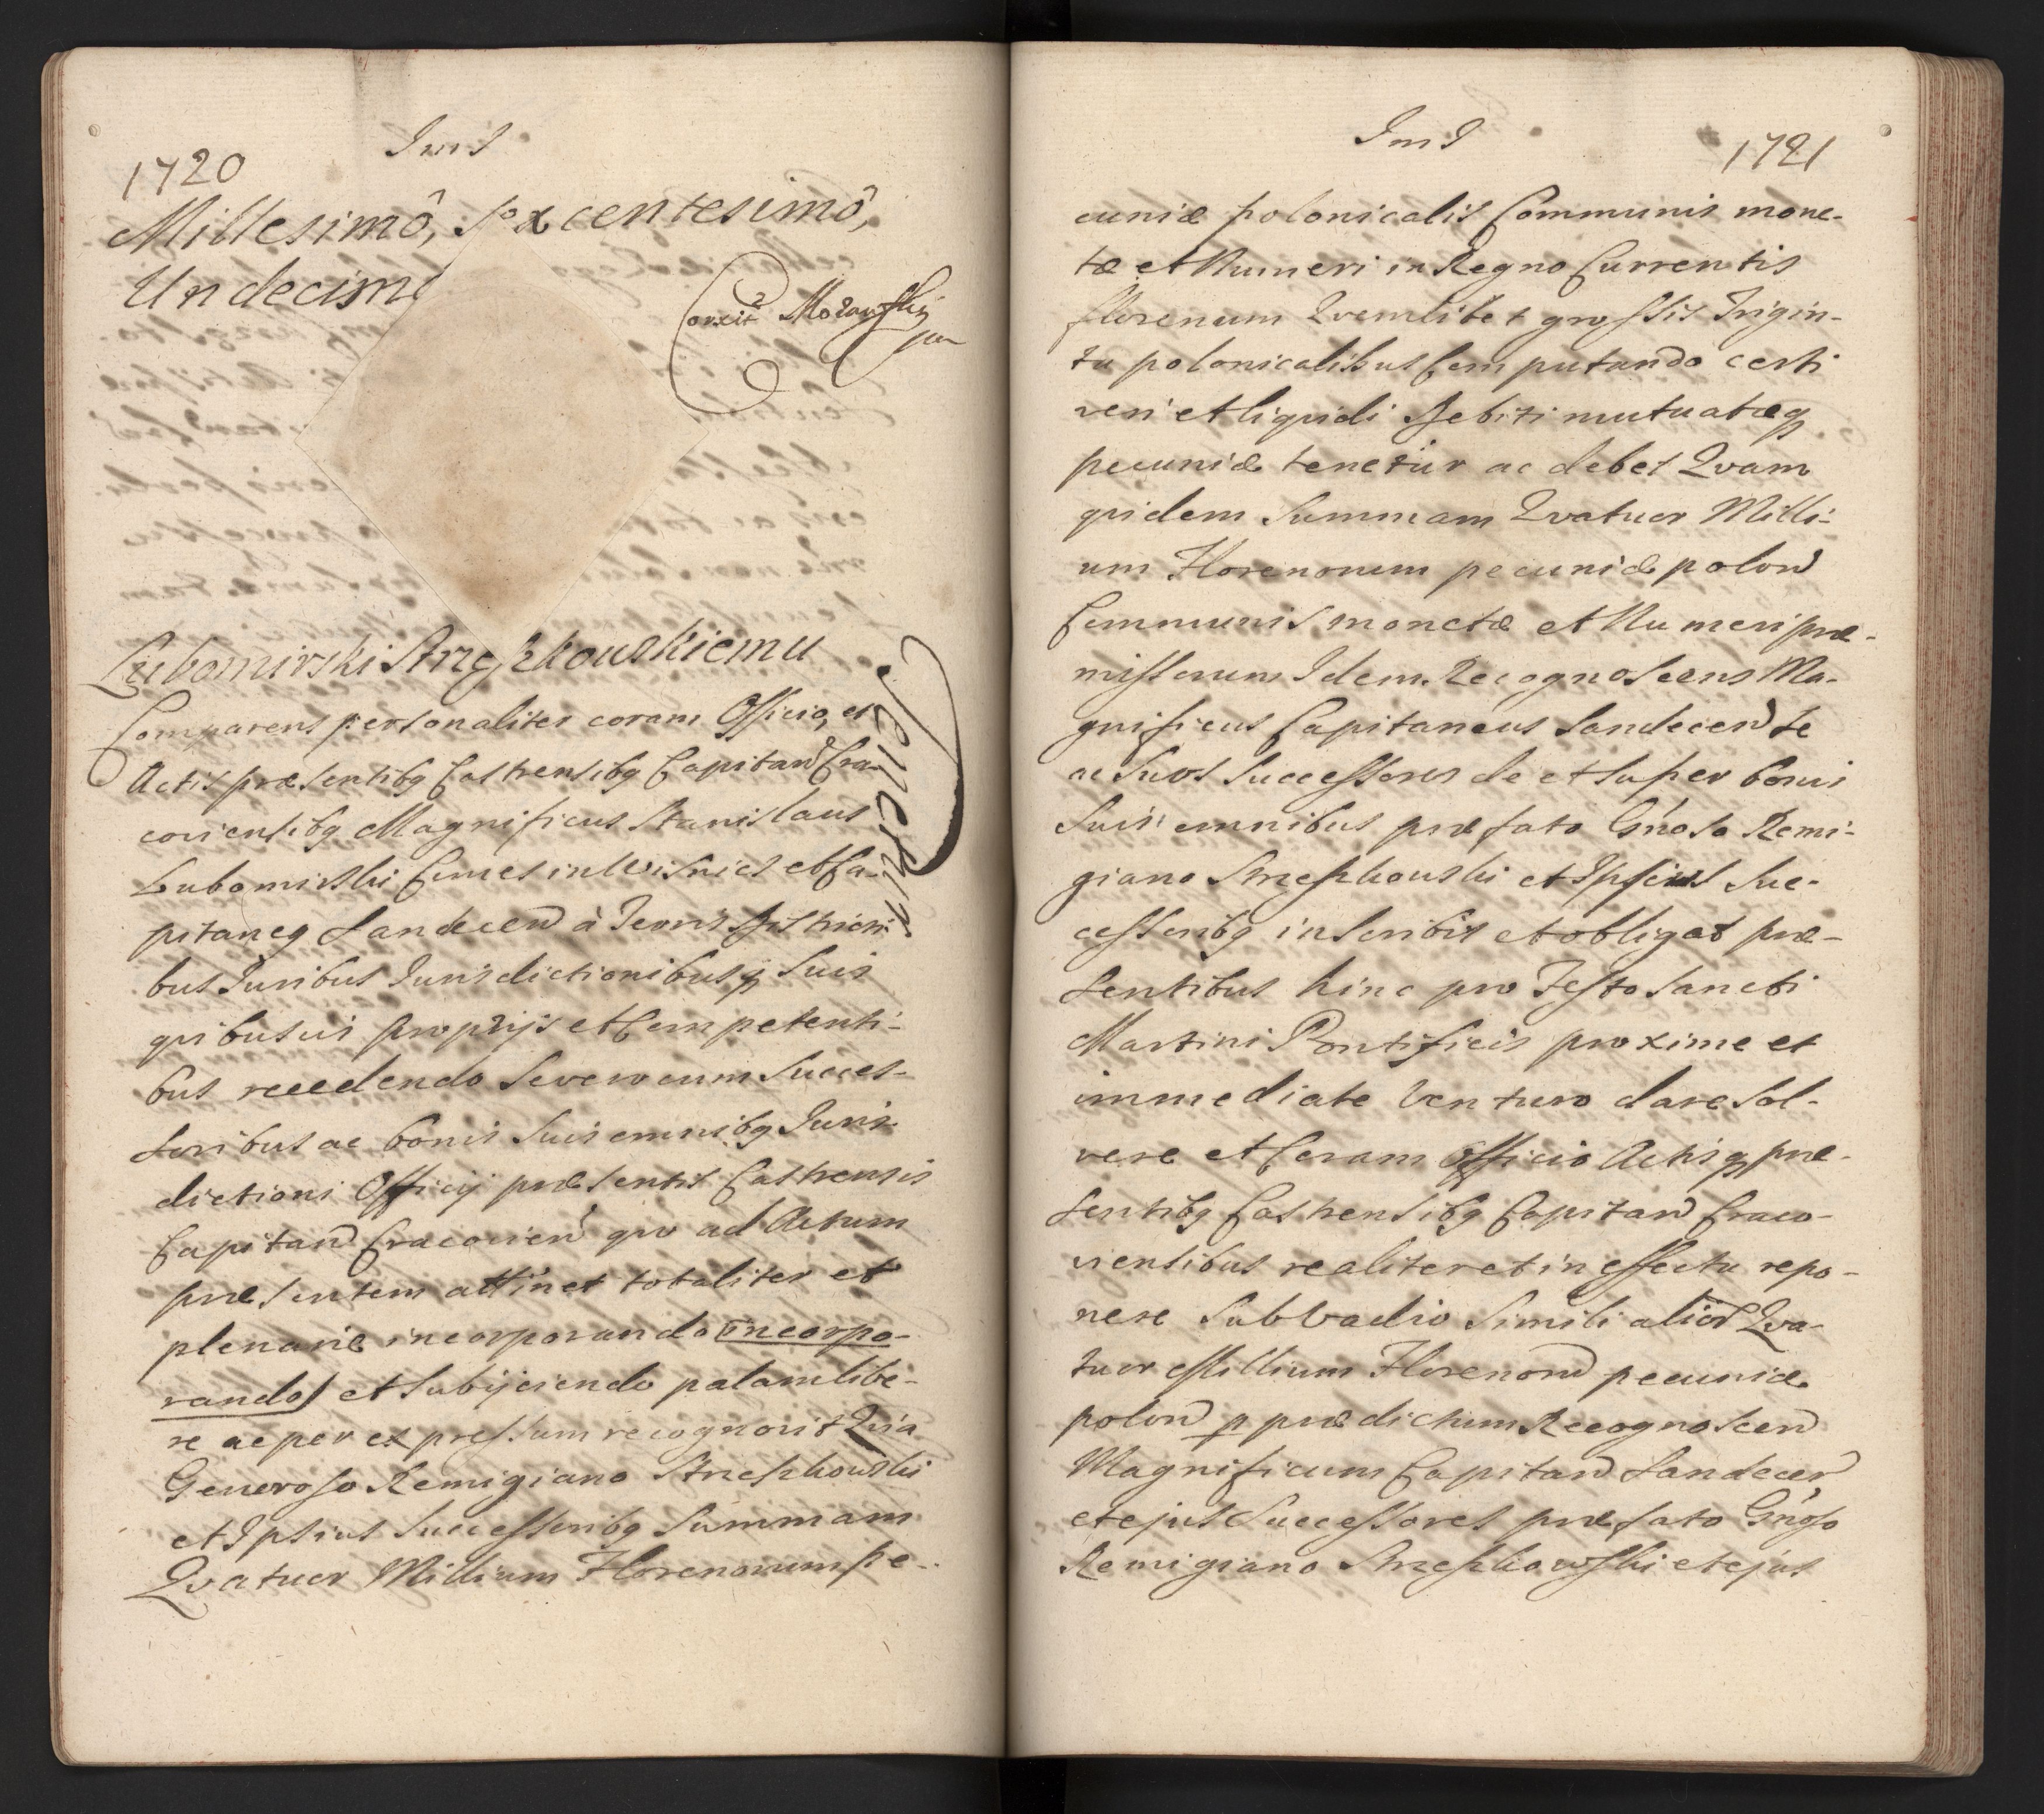 1720
Millesimô, sexcentesimô,
Undecim
Correxit Morawski
Lubomirski Strzeszkouskiemu
Comparens personaliter coram Officio, et
Actis præsentibq Castrensibq Capitan Cra-
coviensibq Magnificus Stanislaus
Lubomirski Comes in Wisnicz et Ca-
pitaneq Sandecen à Terris Districti-
bus Juribus Jurisdictionibusq Suis
quibusvis proprijs et Competenti-
bus recedendo Severocum Succes-
soribus ac bonis Suis omnibq Juris-
dictioni Officij præsentis Castrensis
Capitan Cracovien quo ad Actum
præsentem attinet totaliter et
plenarie incorporando (incorpo-
rando) et Subijciendo palam libe-
re ac per expressum recognovit Quia
Generoso Remigiano Strzeszkouski
et Ipsius Successoribq Summam
Quatuor Millium Florenorum pe-
1721
cuniæ polonicalis Communis mone-
tæ et Numeri in Regno Currentis
florenum Quemlibet grossis Trigin-
ta polonicalibus Computando certi
veri et liquidi Debiti mutuatæq
pecuniæ tenetur ac debet Quam
quidem Summam Quatuor Milli-
um Florenorum pecuniæ polon
Communis monetæ et Numeri præ-
missorum Idem Recognoscens Ma-
gnificus Capitaneus Sandecen Se
ac Suos Successores de et Super bonis
Suis omnibus præfato Gnoso Remi-
giano Strzeszkouski et Ipsius Suc-
cessoribq inscribit et obligat præ-
sentibus hinc pro Festo Sancti
Martini Pontificis proxime et
immediate Venturo dare Sol-
vere et Coram Officio Actisq præ-
sentibq Castrensibq Capitan Craco-
viensibus realiter et in effectu repo-
nere Sub Vadio Simili alior Qua-
tuor Millium Florenorum pecuniæ
polon p prædictum Recognoscen
Magnificum Capitan Sandecen
et ejus Successores præfato Gnoso
Remigiano Strzeszkowski et ejus